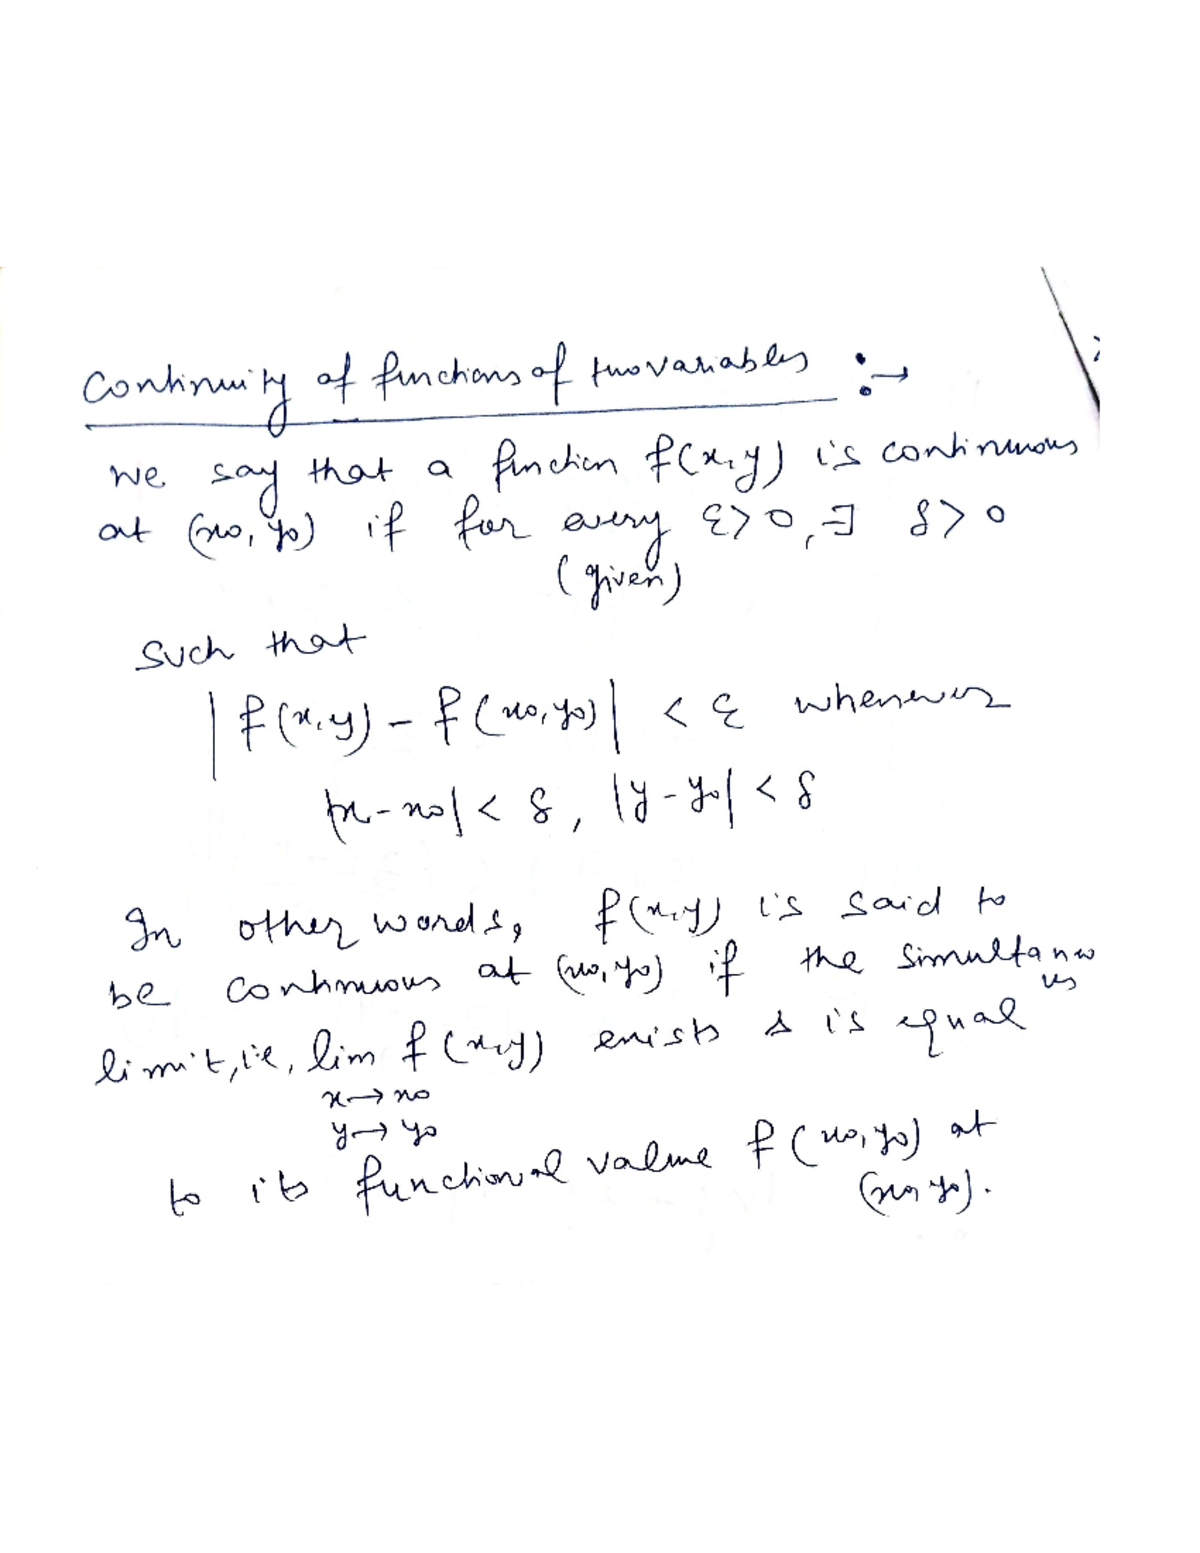 Continuity of functions of two variables :→
we say that a function f(x,y) is continuous
at (x0, y0) if for every ε>0, ∃ δ>0
(given)
Such that
|f(x,y) - f(x0,y0)| < ε whenever
|x-x0| < δ, |y-y0| < δ
In other words, f(x,y) is said to
be continuous at (x0,y0) if the simultaneo
us
limit, i.e, lim f(x,y) exists & is equal
x→x0
y→y0
to its functional value f(x0,y0) at
(x0,y0).